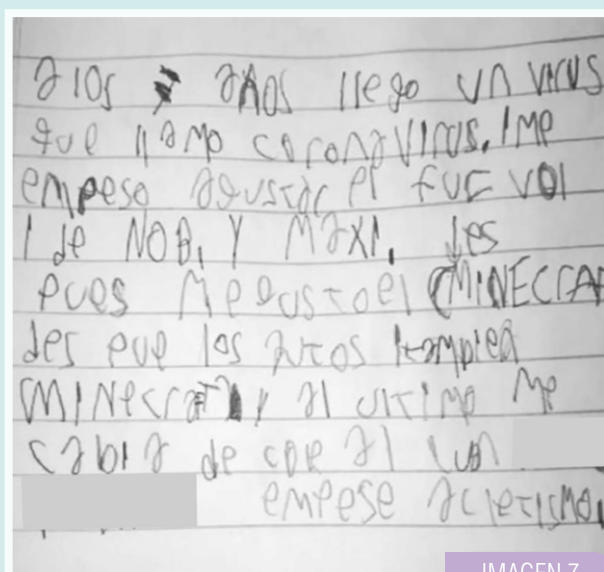 a los años llego un virus
que llamo coronavirus. I me
empeso agustar el fut vol
I de NOB, Y MaxI, des
pues Megusto el (MINECrAf
des pue los autos tampiea
MINecraft, y al ultimo me
cabia de coe al Lun
empese acletismo,
IMAGEN 7